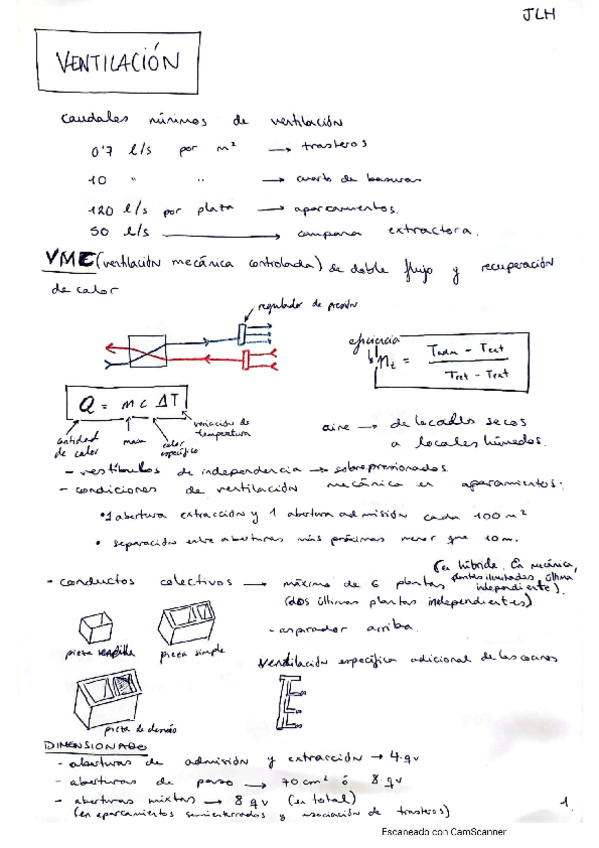 JLH
VENTILACIÓN
caudales mínimos de ventilación
0'7 l/s por m² → trasteros
10 " " → cuarto de basuras
120 l/s por plaza → aparcamientos.
50 l/s → campana extractora.
VMC (ventilación mecánica controlada) de doble flujo y recuperación
de calor
regulador de presión
eficiencia
ηt = Timp - Text
Tret - Text
Q = m c ΔT
cantidad de calor
masa
calor específico
variación de temperatura
aire → de locales secos
a locales húmedos.
- vestíbulos de independencia → sobrepresionados
- condiciones de ventilación mecánica en aparcamientos:
• 1 abertura extracción y 1 abertura admisión cada 100 m²
• separación entre aberturas más próximas menor que 10m.
(en híbrida. En mecánica,
plantas ilimitadas, última
independiente).
- conductos colectivos → máximo de 6 plantas
(dos últimas plantas independientes)
- aspirador arriba.
pieza sencilla
pieza simple
ventilación específica adicional de las cocinas
pieza de
DIMENSIONADO
- aberturas de admisión y extracción → 4·qv
- aberturas de paso → 70 cm² ó 8·qv
- aberturas mixtas → 8 qv (en total)
(en aparcamientos semienterrados y asociación de trasteros)
1.
Escaneado con CamScanner